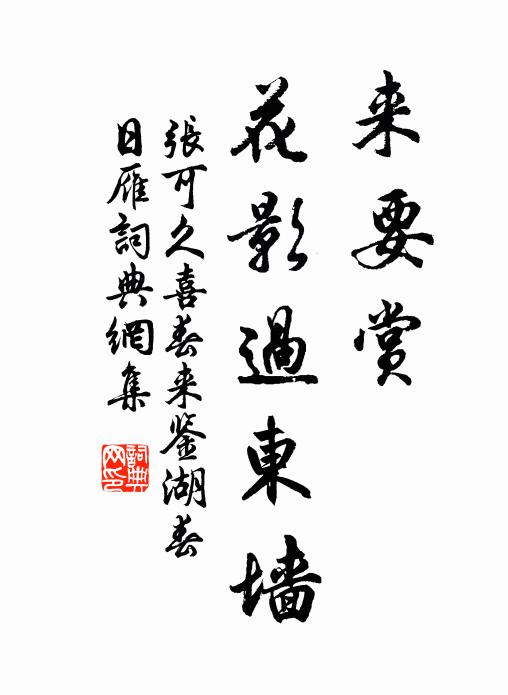 来要赏
花影過東墙
張可久喜春来鉴湖春
日雁詞典網集
詞典
网印